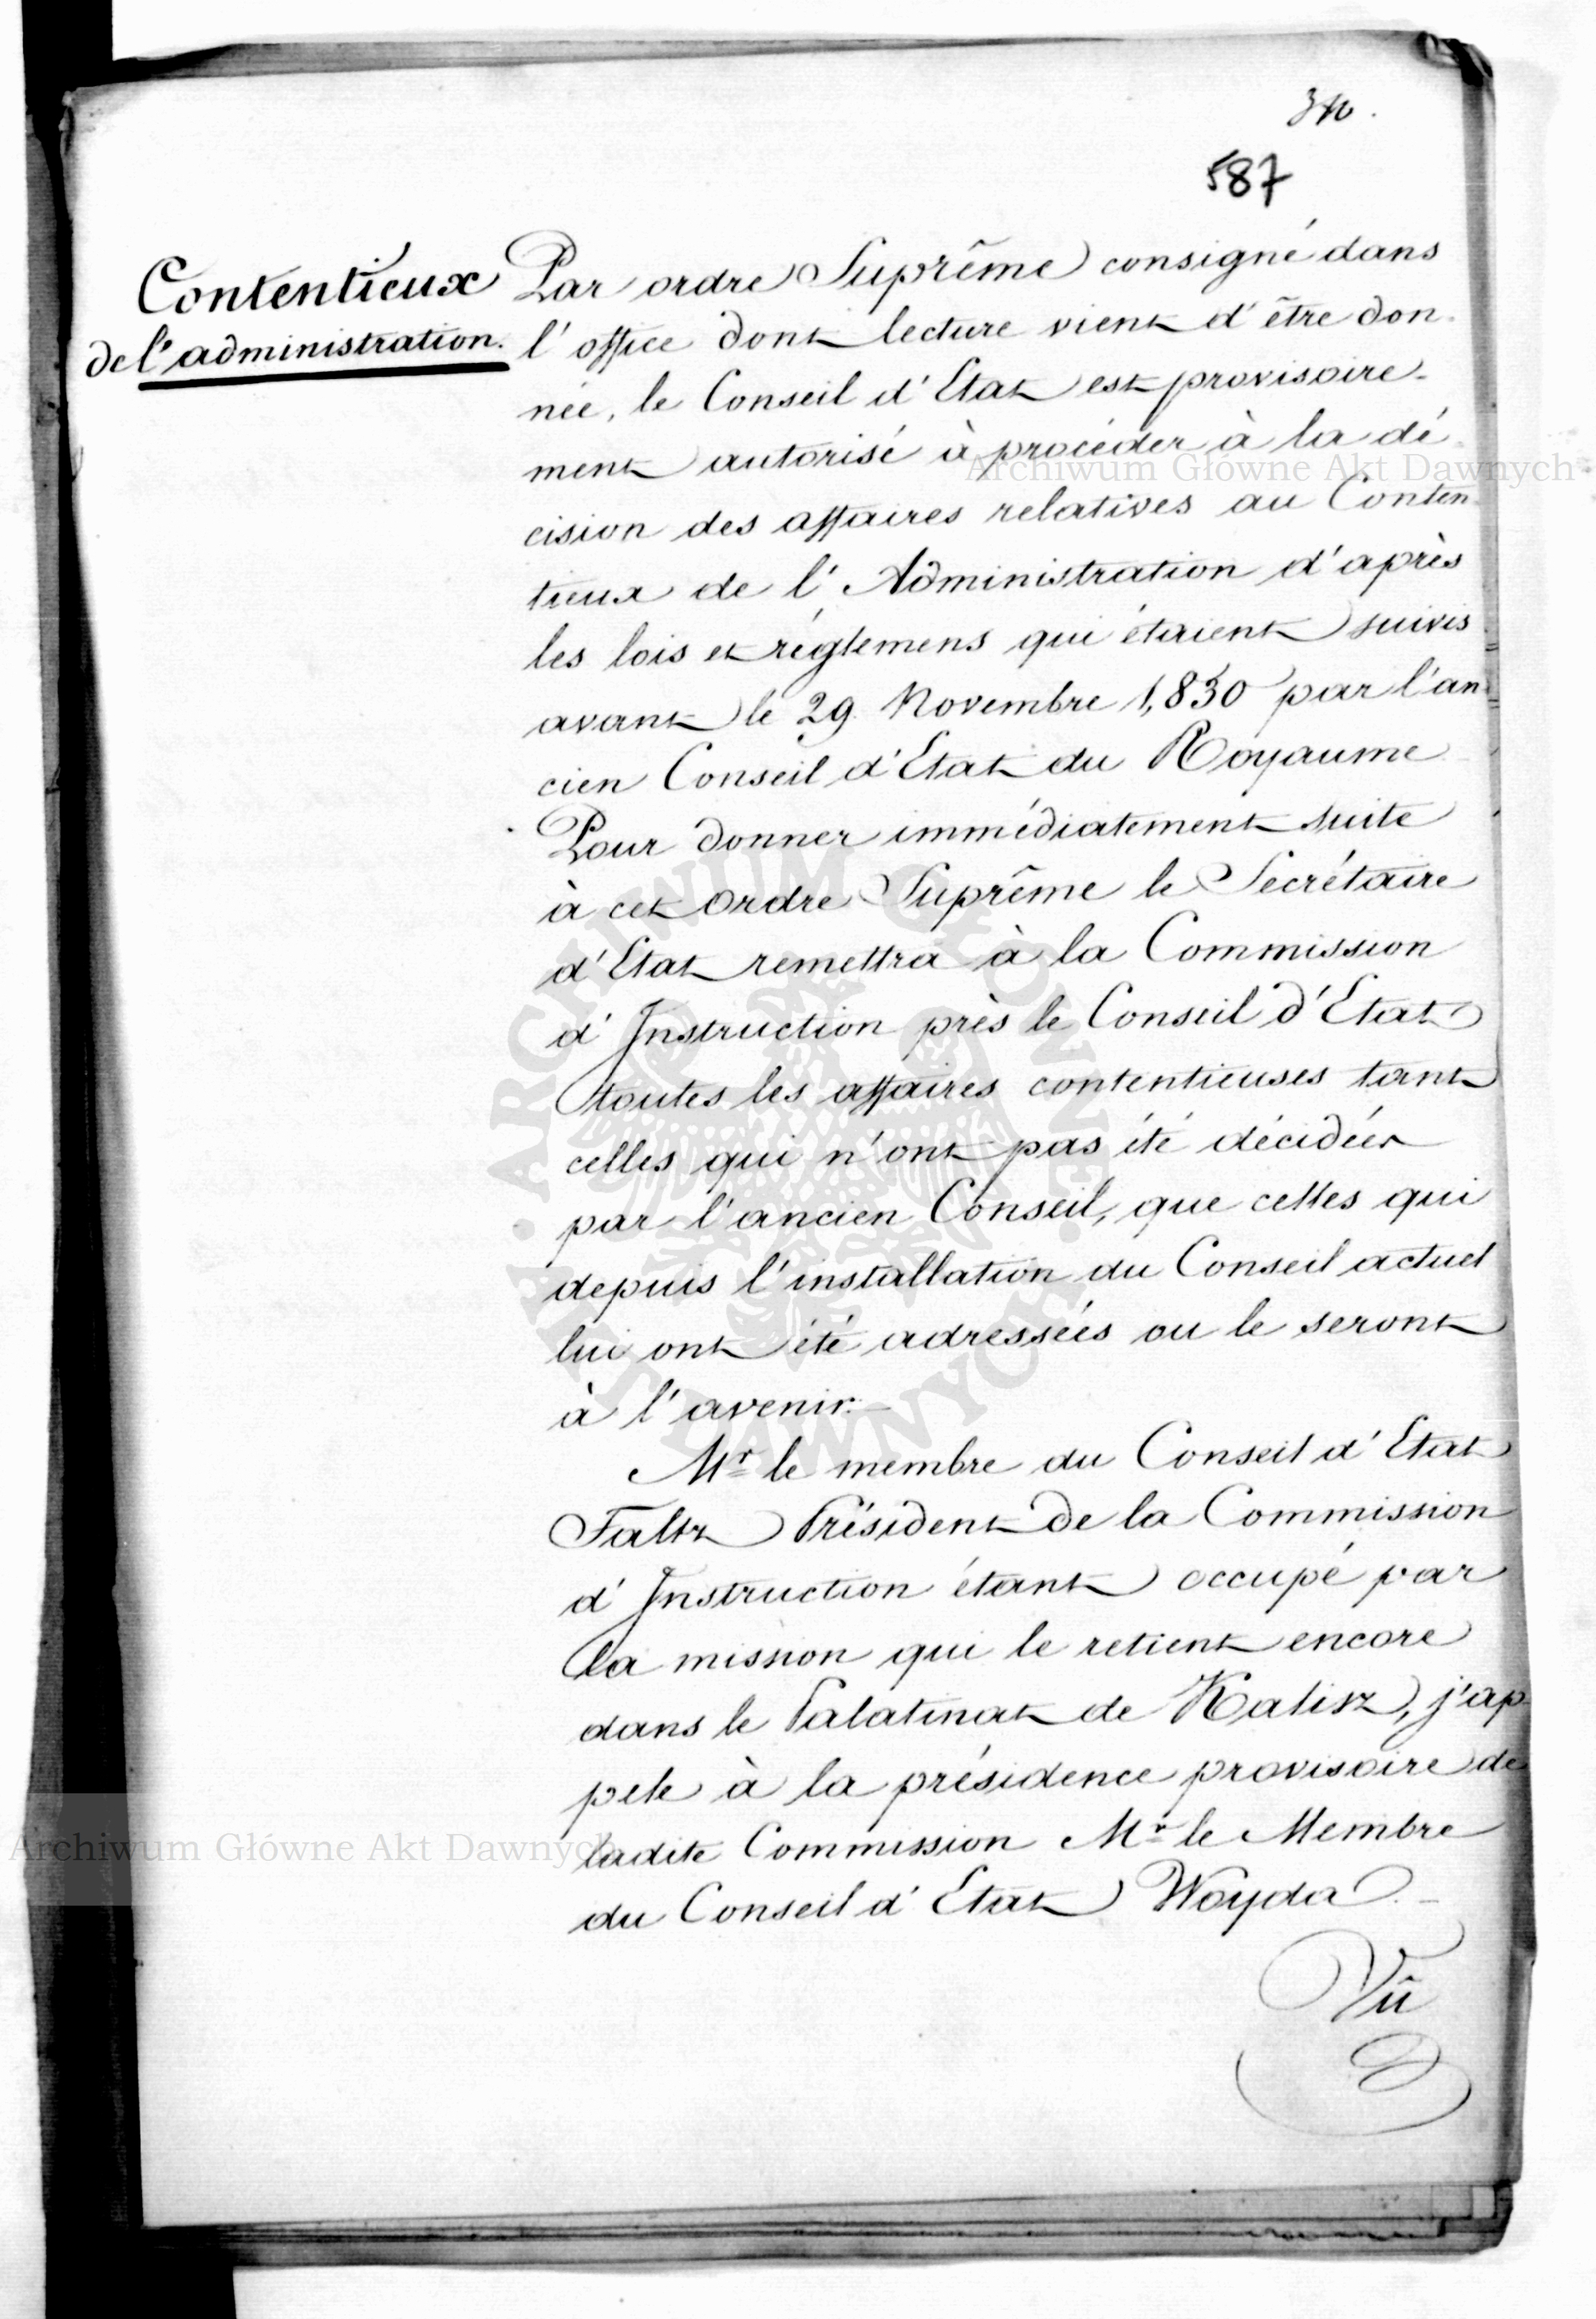 587
Contentieux
de l'administration.
Par ordre Suprême consigné dans
l'office dont lecture vient d'être don-
née, le Conseil d'Etat est provisoire-
ment autorisé à procéder à la dé-
cision des affaires relatives au Conten-
tieux de l'Administration d'après
les lois et réglemens qui étaient suivis
avant le 29 Novembre 1,830 par l'an-
cien Conseil d'Etat du Royaume
Pour donner immédiatement suite
à cet Ordre Suprême le Secrétaire
d'Etat remettra à la Commission
d'Instruction près le Conseil d'Etat
toutes les affaires contentieuses tant
celles qui n'ont pas été décidées
par l'ancien Conseil, que celles qui
depuis l'installation du Conseil actuel
lui ont été adressées ou le seront
à l'avenir.—
Mr le membre du Conseil d'Etat
Faltz Président de la Commission
d'Instruction étant occupé par
la mission qui le retient encore
dans le Palatinat de Kalisz, j'ap-
pele à la présidence provisoire de
ladite Commission Mr le Membre
du Conseil d'Etat Woyda.—
Vû
Archiwum Główne Akt Dawnych
Archiwum Główne Akt Dawnych
ARCHIWUM GŁÓWNE · AKT DAWNYCH ·